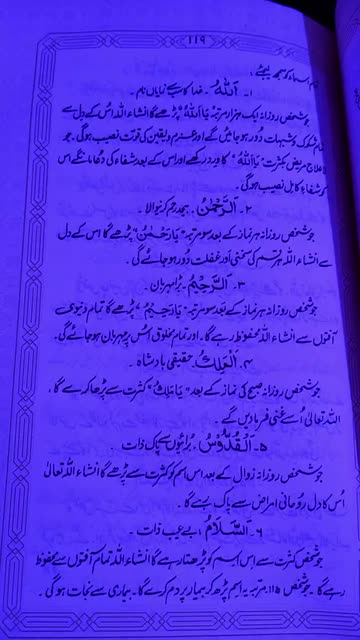 ۱۱۹
سمجھ لیجئے ،
۱۔ اَللّٰهُ ۔ خدا کا سب سے نمایاں نام ۔
جو شخص روزانہ ایک ہزار مرتبہ یا اَللّٰهُ پڑھے گا انشاء اللہ اُس کے دل سے
تمام شکوک و شبہات دُور ہو جائیں گے اور عزم و یقین کی قوت نصیب ہوگی ۔ جو
لاعلاج مریض بکثرت "یَا اَللّٰهُ" کا ورد رکھے اور اس کے بعد شفاء کی دُعا مانگے اس
کو شفاء کامل نصیب ہوگی ۔
۲۔ اَلرَّحْمٰنُ ، بیحد رحم کرنیوالا ۔
جو شخص روزانہ ہر نماز کے بعد سو مرتبہ "یَا رَحْمٰنُ" پڑھے گا اس کے دل
سے انشاء اللہ ہر قسم کی سختی اور غفلت دُور ہو جائے گی ۔
۳۔ اَلرَّحِیْمُ ۔ بڑا مہربان ۔
جو شخص روزانہ ہر نماز کے بعد سو مرتبہ "یَا رَحِیْمُ" پڑھے گا تمام دنیوی
آفتوں سے انشاء اللہ محفوظ رہے گا ۔ اور تمام مخلوق اس پر مہربان ہو جائے گی ۔
۴۔ اَلْمَلِكُ ۔ حقیقی بادشاہ ۔
جو شخص روزانہ صبح کی نماز کے بعد "یَا مَلِكُ" کثرت سے پڑھا کرے گا ،
اللہ تعالٰی اُسے غنی فرما دیں گے ۔
۵۔ اَلْقُدُّوْسُ ، بُرائیوں سے پاک ذات ۔
جو شخص روزانہ زوال کے بعد اس اسم کو کثرت سے پڑھے گا انشاء اللہ تعالٰی
اُس کا دل روحانی امراض سے پاک رہے گا ۔
۶۔ اَلسَّلَامُ ، بے عیب ذات ۔
جو شخص کثرت سے اس اسم کو پڑھتا رہے گا انشاء اللہ تمام آفتوں سے محفوظ
رہے گا ۔ جو شخص ۱۱۵ مرتبہ یہ اسم پڑھ کر بیمار پر دم کرے گا ۔ بیماری سے نجات ہوگی ۔